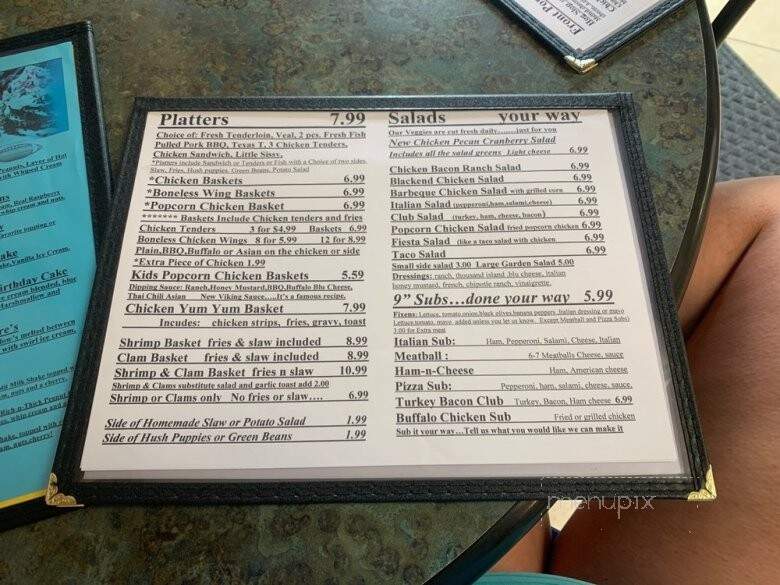 Platters 7.99
Choice of: Fresh Tenderloin, Veal, 2 pcs. Fresh Fish
Pulled Pork BBQ, Texas T, 3 Chicken Tenders,
Chicken Sandwich, Little Sissy,
*Platters include Sandwich or Tenders or Fish with a Choice of two sides.
Slaw, Fries, Hush puppies, Green Beans, Potato Salad
*Chicken Baskets 6.99
*Boneless Wing Baskets 6.99
*Popcorn Chicken Basket 6.99
******* Baskets Include Chicken tenders and fries
Chicken Tenders 3 for $4.99 Baskets 6.99
Boneless Chicken Wings 8 for 5.99 12 for 8.99
Plain,BBQ,Buffalo or Asian on the chicken or side
*Extra Piece of Chicken 1.99
Kids Popcorn Chicken Baskets 5.59
Dipping Sauce: Ranch,Honey Mustard,BBQ,Buffalo Blu Cheese,
Thai Chili Asian New Viking Sauce....It's a famous recipe.
Chicken Yum Yum Basket 7.99
Incudes: chicken strips, fries, gravy, toast
Shrimp Basket fries & slaw included 8.99
Clam Basket fries & slaw included 8.99
Shrimp & Clam Basket fries n slaw 10.99
Shrimp & Clams substitute salad and garlic toast add 2.00
Shrimp or Clams only No fries or slaw.... 6.99
Side of Homemade Slaw or Potato Salad 1.99
Side of Hush Puppies or Green Beans 1.99
Salads your way
Our Veggies are cut fresh daily.......just for you
New Chicken Pecan Cranberry Salad
Includes all the salad greens Light cheese 6.99
Chicken Bacon Ranch Salad 6.99
Blackend Chicken Salad 6.99
Barbeque Chicken Salad with grilled corn 6.99
Italian Salad (pepperoni,ham,salami,cheese) 6.99
Club Salad (turkey, ham, cheese, bacon) 6.99
Popcorn Chicken Salad fried popcorn chicken 6.99
Fiesta Salad (like a taco salad with chicken 6.99
Taco Salad 6.99
Small side salad 3.00 Large Garden Salad 5.00
Dressings: ranch, thousand island ,blu cheese, italian
honey mustard, french, chipotle ranch, vinaigrette,
9” Subs…done your way 5.99
Fixens: Lettuce, tomato,onion,black olives,banana peppers, Italian dressing or mayo
Lettuce,tomato, mayo added unless you let us know. Except Meatball and Pizza Subs)
3.00 for Extra meat
Italian Sub: Ham, Pepperoni, Salami, Cheese, Italian
Meatball : 6-7 Meatballs Cheese, sauce
Ham-n-Cheese Ham, American cheese
Pizza Sub: Pepperoni, ham, salami, cheese, sauce,
Turkey Bacon Club Turkey, Bacon, Ham cheese 6.99
Buffalo Chicken Sub Fried or grilled chicken
Sub it your way…Tell us what you would like we can make it
Front
Layer of Hot
with Whipped Cream
Real Raspberry
whip cream and nuts.
favorite topping or
Vanilla Ice Cream,
irthday Cake
ice cream blended, blue
Marshmallow and
re's
melted between
with swirl ice cream,
Milk Shake topped
nuts and a cherry.
Rich n-Thick Peanut
whip cream and
Shake, topped with
nuts cherry!
menupix